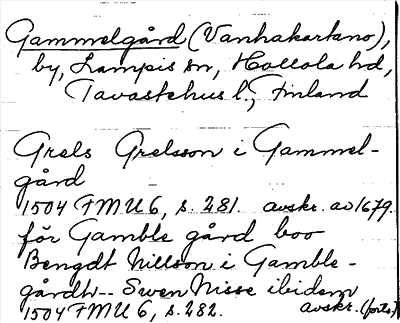 Gammelgård (Vanhakartano),
by, Lampis sn, Hollola hd,
Tavastehus l., Finland
Grels Grelsson i Gammel-
gård
1504 FMU 6, s. 281. avskr. av 1679.
för Gamble gård boo
Bengdt Nillson i Gamble-
gårdh -- Swen Nisse ibidem
1504 FMU 6, s. 282. avskr. (forts.)